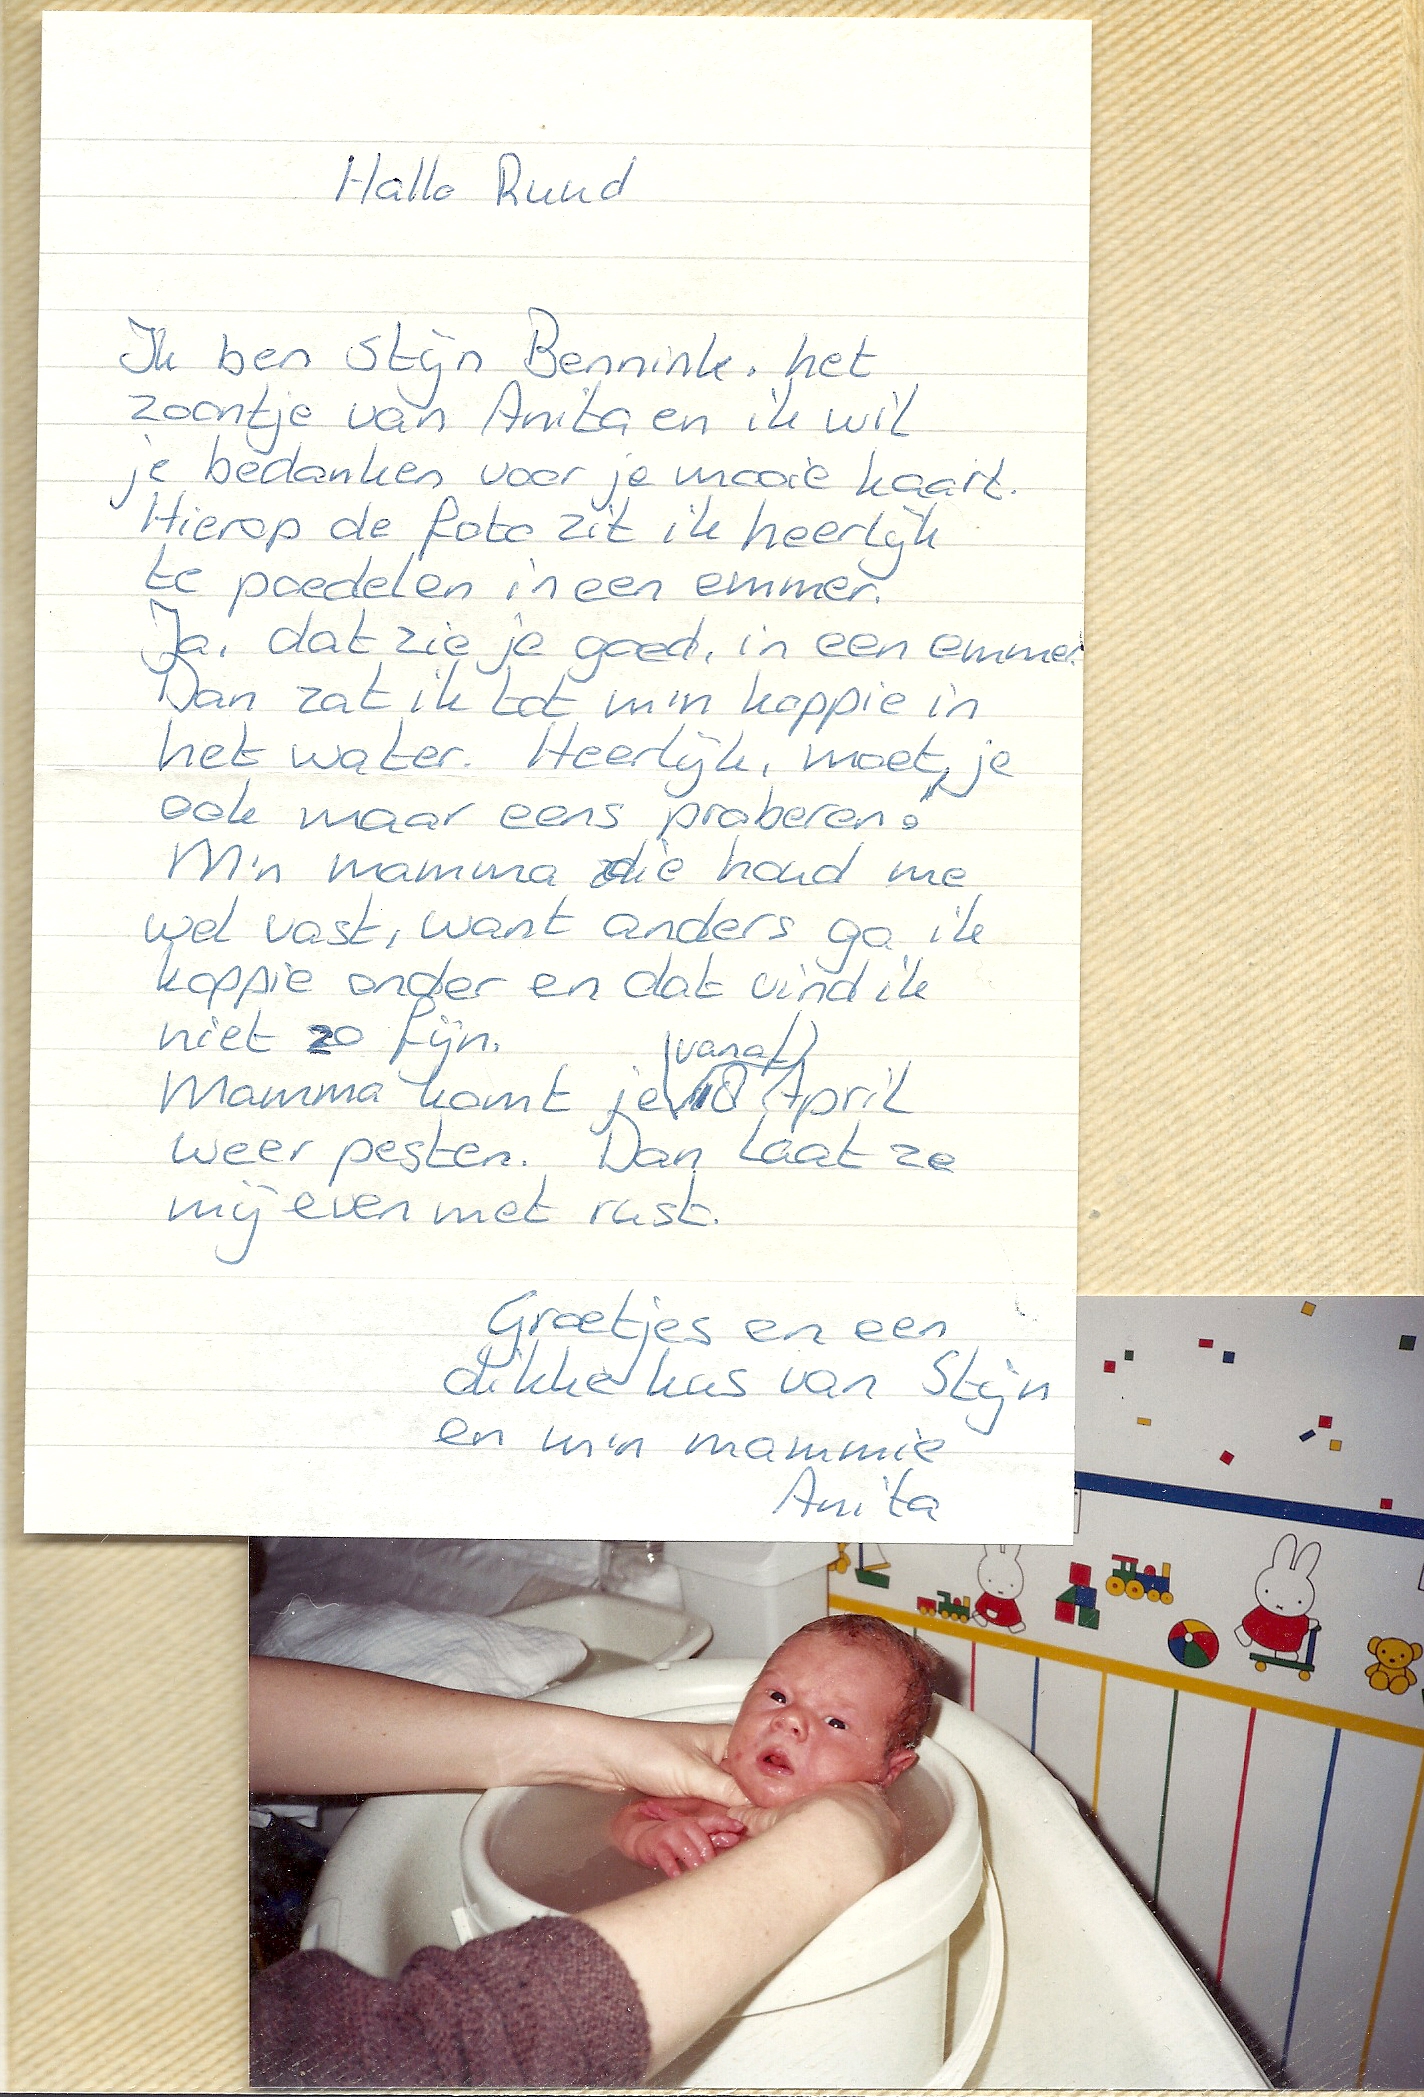 Hallo Ruud
Ik ben Stijn Bennink. het
zoontje van Anita en ik wil
je bedanken voor je mooie kaart.
Hierop de foto zit ik heerlijk
te poedelen in een emmer.
Ja, dat zie je goed, in een emmer.
Dan zat ik tot m'n koppie in
het water. Heerlijk, moet je
ook maar eens proberen!
M'n mamma die houd me
wel vast, want anders ga ik
koppie onder en dat vind ik
niet zo fijn.
(vanaf)
Mamma komt je 18 April
weer pesten. Dan laat ze
mij even met rust.
Groetjes en een
dikke kus van Stijn
en m'n mammie
Anita